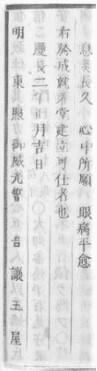 息災長久　心中所願　眼病平愈
右於成就者堂建立可仕者也
慶長二年正月吉日
明　東　照　御威光誓　音　讓　王　屋